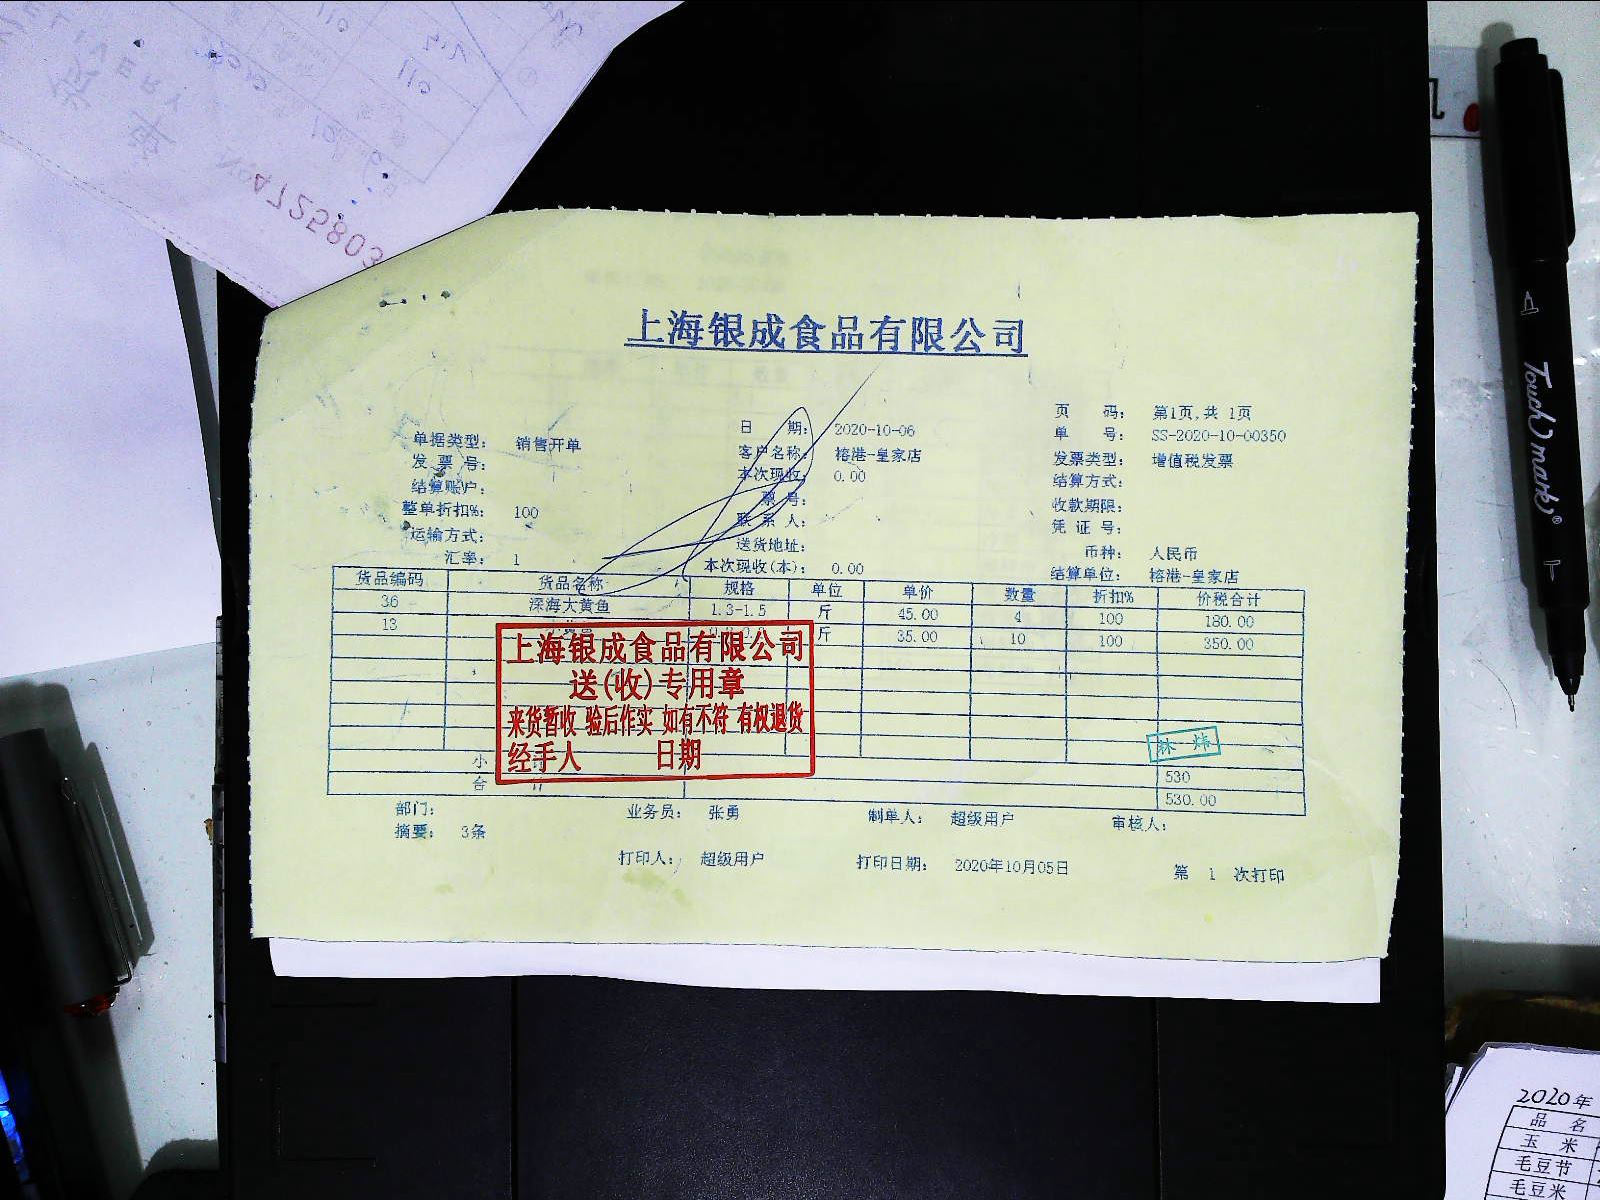 4725803
上海银成食品有限公司
单据类型: 销售开单
发 票 号:
结算账户:
整单折扣%: 100
运输方式:
汇率: 1
日 期: 2020-10-06
客户名称: 榕港-皇家店
本次现收: 0.00
票 号:
联 系 人:
送货地址:
本次现收(本): 0.00
页 码: 第1页,共 1页
单 号: SS-2020-10-00350
发票类型: 增值税发票
结算方式:
收款期限:
凭 证 号:
币种: 人民币
结算单位: 榕港-皇家店
货品编码 货品名称 规格 单位 单价 数量 折扣% 价税合计
36 深海大黄鱼 1.3-1.5 斤 45.00 4 100 180.00
13 斤 35.00 10 100 350.00
上海银成食品有限公司
送(收)专用章
来货暂收 验后作实 如有不符 有权退货
经手人 日期
林 炜
小 计 530
合 计 530.00
部门: 业务员: 张勇 制单人: 超级用户 审核人:
摘要: 3条
打印人: 超级用户 打印日期: 2020年10月05日 第 1 次打印
Touch mark
2020年
品 名
玉 米
毛豆节
毛豆米